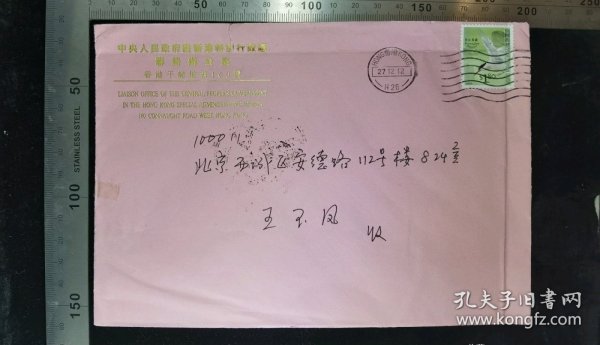 中央人民政府駐香港特別行政區
聯絡辦公廳
香港干諾道西160號
LIAISON OFFICE OF THE CENTRAL PEOPLE'S GOVERNMENT
IN THE HONG KONG SPECIAL ADMINISTRATIVE REGION
160 CONNAUGHT ROAD WEST, HONG KONG
HONG KONG
27.12.12
H 26
1000
北京 安德路112号楼824室
王玉凤 收
STAINLESS STEEL
50
100
150
孔夫子旧书网
www.kongfz.com